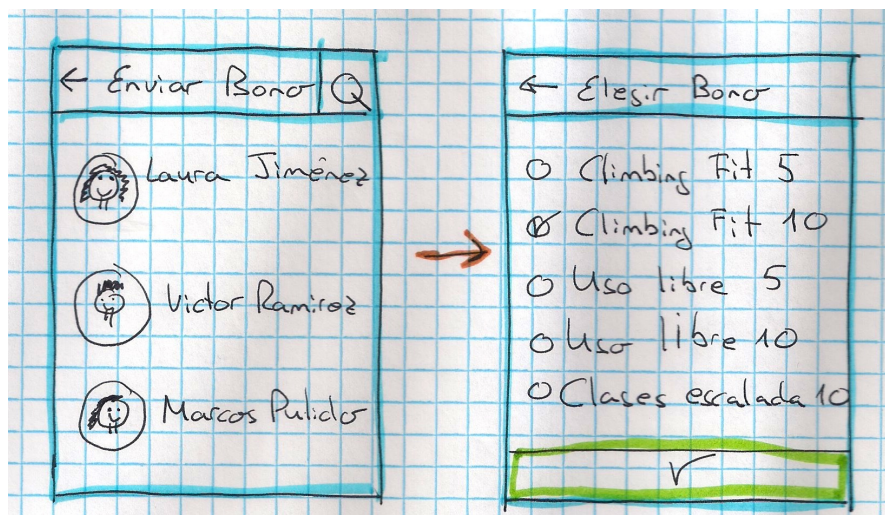 ← Enviar Bono
Laura Jiménez
Victor Ramirez
Marcos Pulido
← Elegir Bono
Climbing Fit 5
Climbing Fit 10
Uso libre 5
Uso libre 10
Clases escalada 10